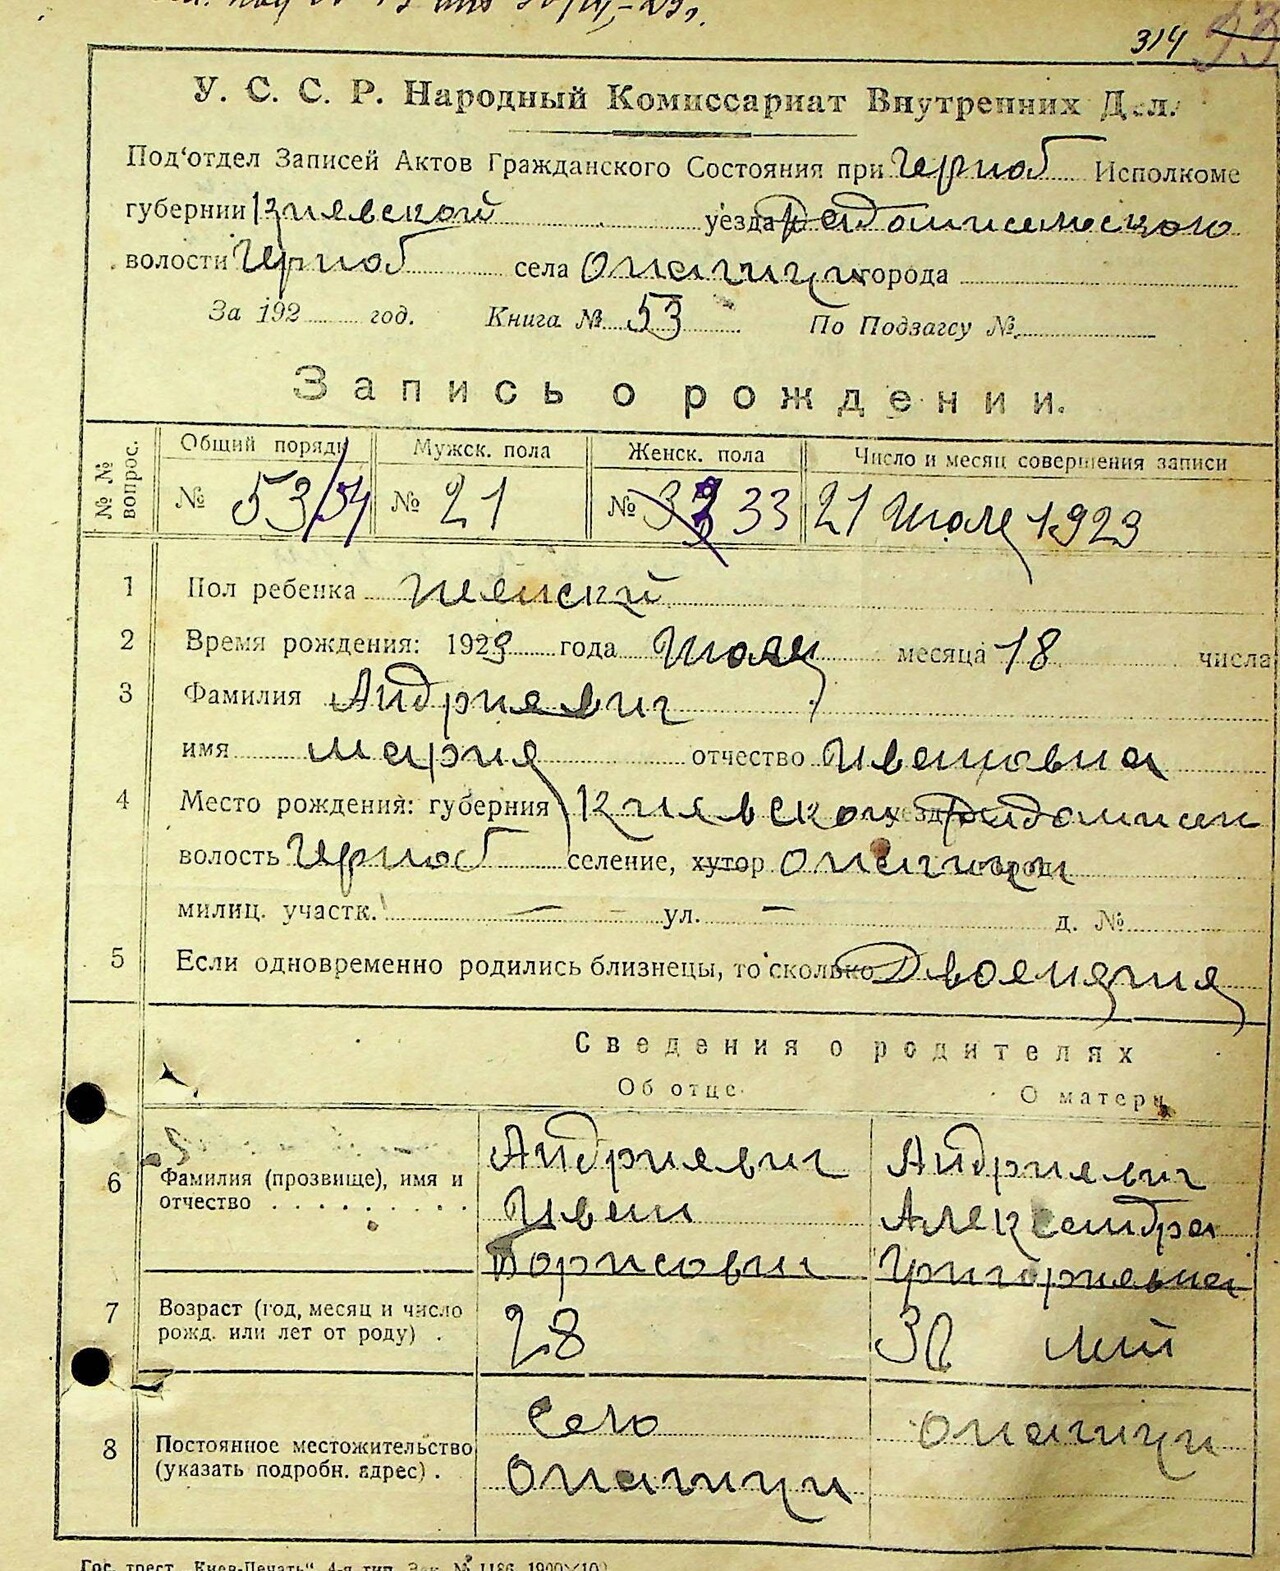 314 33
У. С. С. Р. Народный Комиссариат Внутренних Дел.
Под'отдел Записей Актов Гражданского Состояния при Черноб Исполкоме
губернии Киевской уезда Радомисельского
волости Черноб села Опачичи города
За 192 год. Книга № 53 По Подзагсу №
Запись о рождении.
№ № вопрос. Общий поряд Мужск. пола Женск. пола Число и месяц совершения записи
№ 53/54 № 21 № 33 21 Июля 1923
1 Пол ребенка женский
2 Время рождения: 1923 года Июля месяца 18 числа
3 Фамилия Андриевич
имя мария отчество Ивановна
4 Место рождения: губерния Киевской уезд Радомисел
волость Черноб селение, хутор Опачичи город
милиц. участк. — ул. — д. №
5 Если одновременно родились близнецы, то сколько Двоенятия
Сведения о родителях
Об отце О матери
6 Фамилия (прозвище), имя и отчество Андриевич Иван Борисови Андриевич Александра Григориевна
7 Возраст (год, месяц и число рожд. или лет от роду) 28 30 лит
8 Постоянное местожительство (указать подробн. адрес) Село Опачичи Опачичи
Гос. трест „Киев-Печать“ 4-я тип. Зак. № 1186